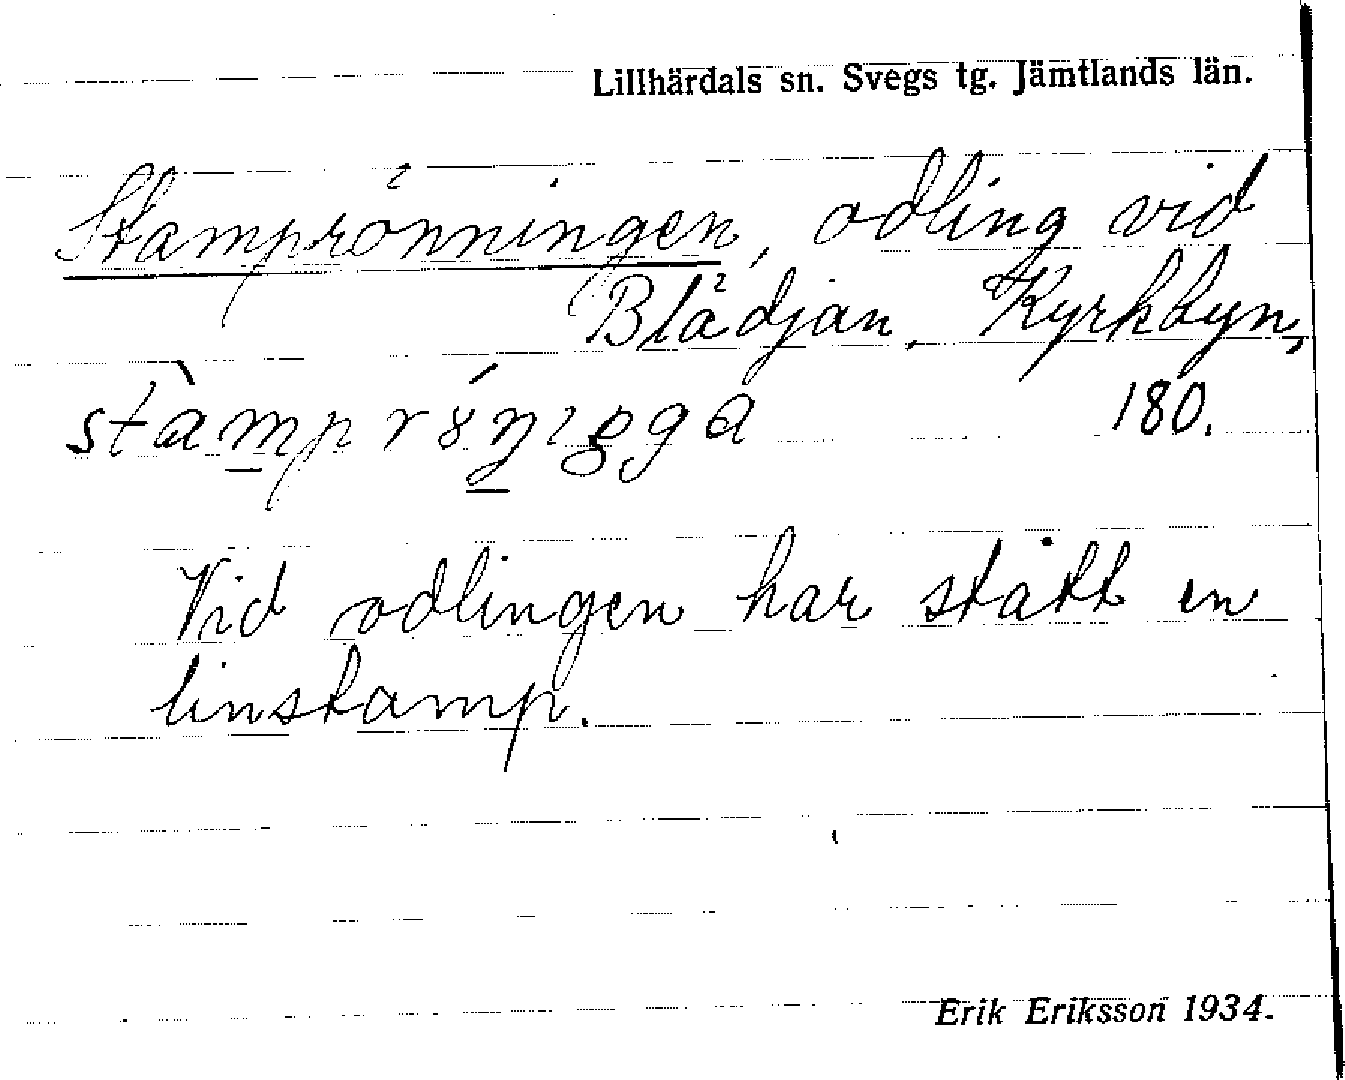 Lillhärdals sn. Svegs tg. Jämtlands län.
Stamprönningen, odling vid
Blädjan, Kyrkbyn,
180.
Vid odlingen har stått en
linstamp.
Erik Eriksson 1934.